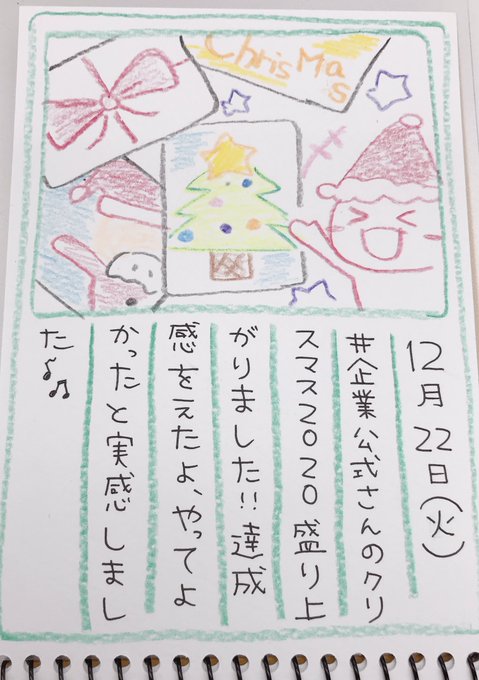 Christmas
12月22日(火)
#企業公式さんのクリ
スマス2020盛り上
がりました!!達成
感をえたよ、やってよ
かったと実感しまし
た♪♫